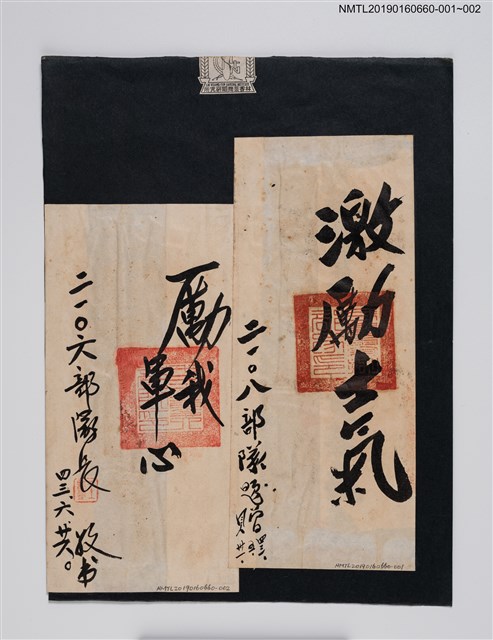 NMTL20190160660-001~002
激勵士氣
二一〇八部隊
NMTL20190160660-001
勵我
軍心
二一〇六部隊長 敬書
四三、六、廿六。
NMTL20190160660-002